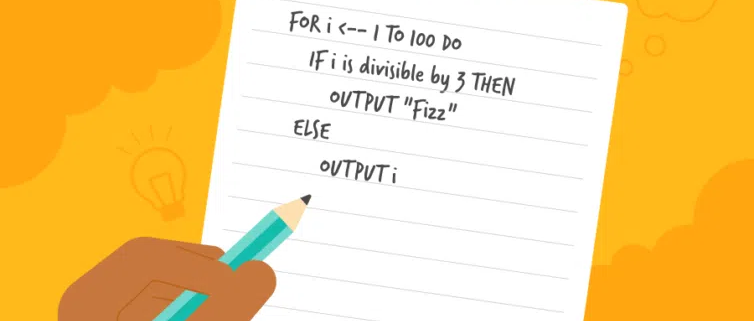 FOR i <-- 1 TO 100 DO
IF i is divisible by 3 THEN
OUTPUT "Fizz"
ELSE
OUTPUT i